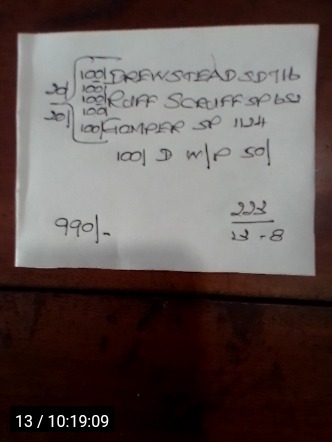 100/ DREWSTEAD SD716
20/ 100/
100/ RUFF SCRUFF SP652
20/ 100/
100/ GOMPER SP 1124
100/ D W/P 50/
990/-
223
13 - 8
13 / 10:19:09